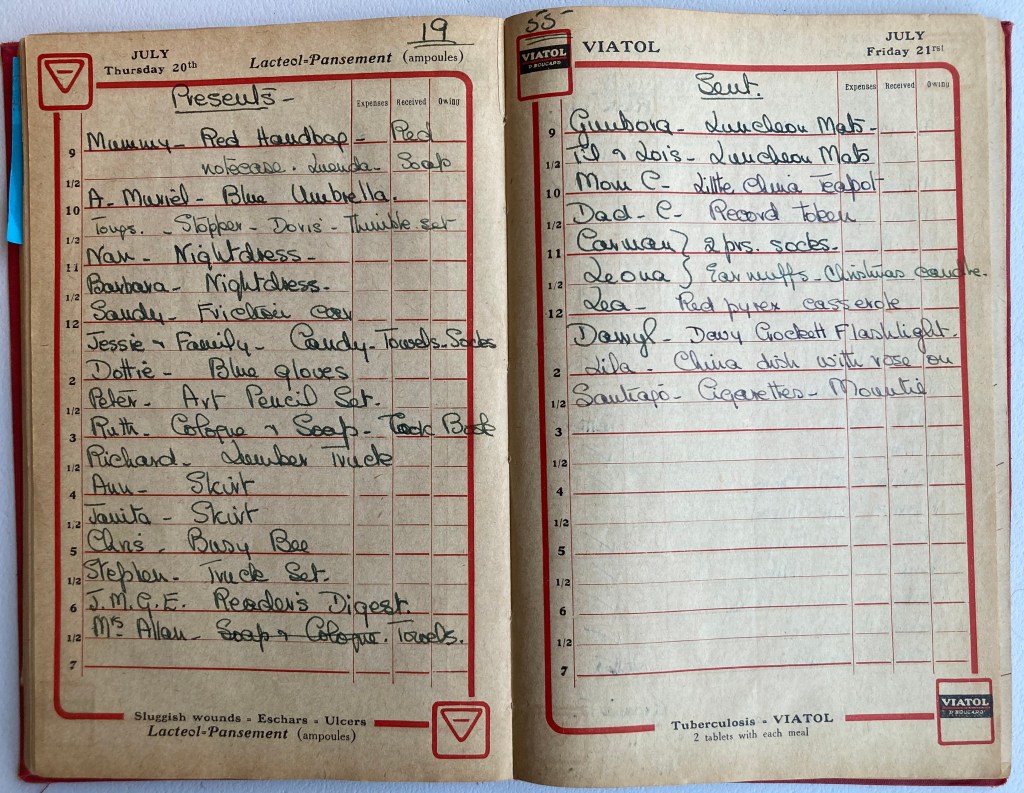 19
JULY
Thursday 20th
Lacteol=Pansement (ampoules)
Presents -
Expenses Received Owing
Mummy - Red Handbag - Red
9
notecase. Soap
1/2
A. Muriel - Blue Umbrella.
10
Toups. - Stopper - Doris - Thimble set
1/2
Nan - Nightdress -
11
Barbara - Nightdress -
1/2
Sandy - Friction car
12
Jessie & Family - Candy - Towels - Socks
Dottie - Blue gloves
2
Peter - Art Pencil Set.
1/2
Ruth - Cologne & Soap - Book
3
Richard - Lumber Truck
1/2
Ann - Skirt
4
Janita - Skirt
1/2
Chris. Busy Bee
5
Stephen - Truck Set.
1/2
J.M.G.E. Reader's Digest.
6
Mrs Allan - Soap & Cologne. Towels.
1/2
7
Sluggish wounds - Eschars - Ulcers
Lacteol=Pansement (ampoules)
55-
VIATOL
P. BOUCARD
VIATOL
JULY
Friday 21rst
Sent.
Expenses Received Owing
Luncheon Mats -
9
Til & Lois - Luncheon Mats
1/2
Mom C - Little China Teapot
10
Dad - C - Record token
1/2
Carman } 2 prs. socks.
11
Leona } Ear muffs - Christmas candle.
1/2
Lea - Red pyrex casserole
12
Darryl - Davy Crockett Flashlight.
Lila - China dish with rose on
2
Santiago - Cigarettes - Mountie
1/2
3
1/2
4
1/2
5
1/2
6
1/2
7
Tuberculosis - VIATOL
2 tablets with each meal
VIATOL
P. BOUCARD